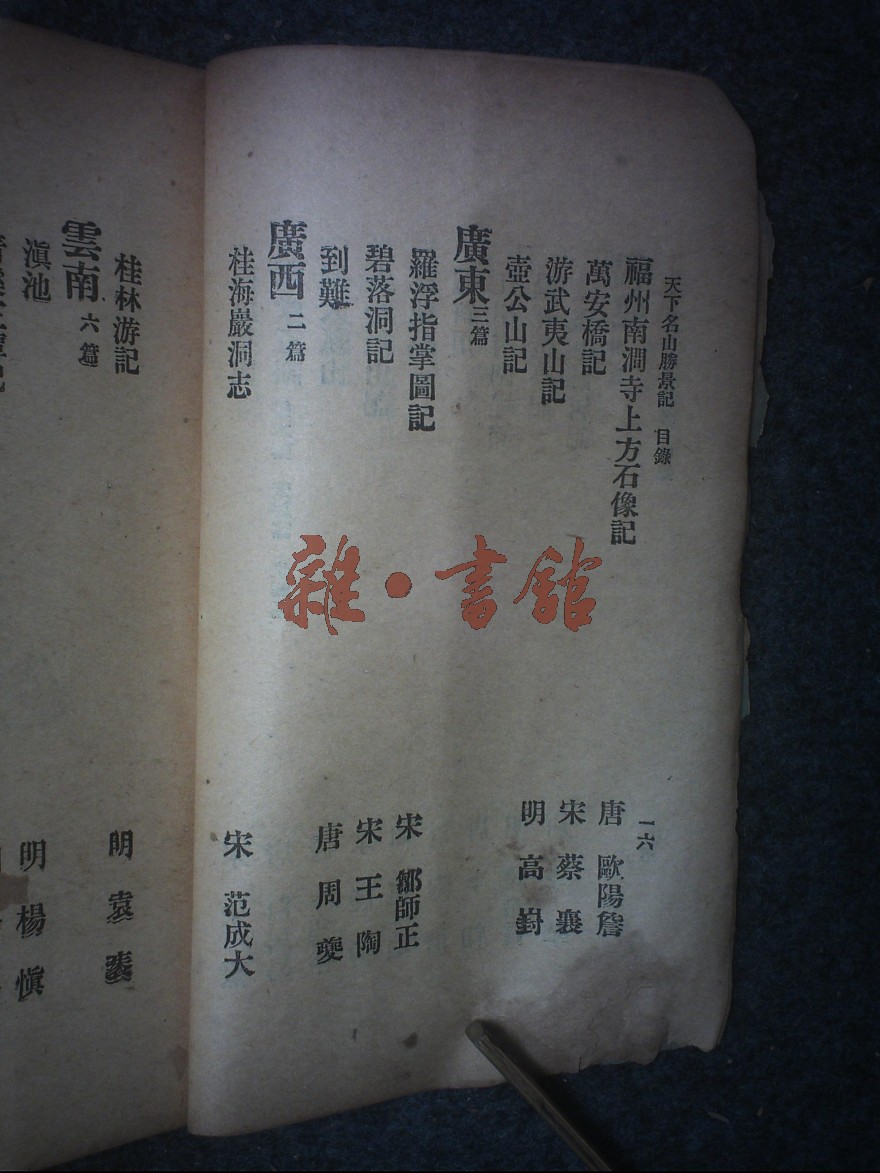 天下名山勝景記 目錄 一六
福州南澗寺上方石像記 唐 歐陽詹
萬安橋記 宋 蔡襄
游武夷山記 明 高
壺公山記
廣東 三篇
羅浮指掌圖記 宋 鄒師正
碧落洞記 宋 王陶
到難 唐 周夔
廣西 二篇
桂海巖洞志 宋 范成大
桂林游記 明 袁
雲南 六篇
滇池 明 楊愼
雜·書館